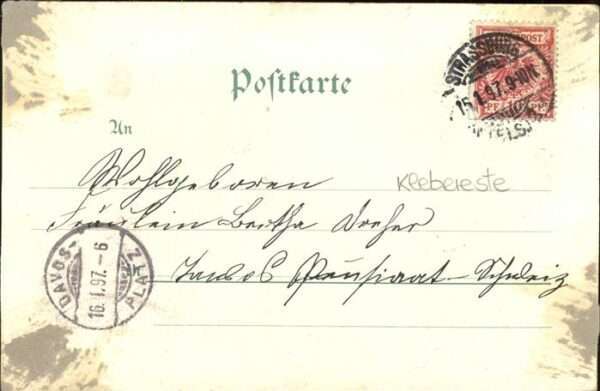 Postkarte
STRASSBURG
15.1.97. 9-10N.
An
Wohlgeboren
Klebereste
Fräulein Bertha Dreher
Schweiz
DAVOS-PLATZ
16.I.97.-6